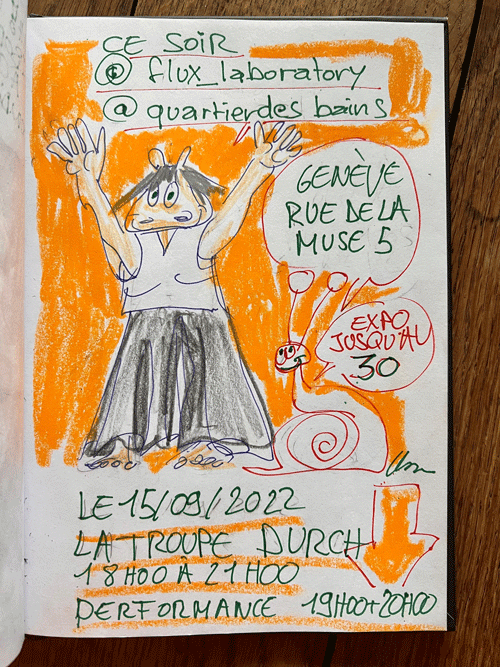 CE SOIR
@ flux_laboratory
@ quartierdes bains
GENÈVE
RUE DE LA
MUSE 5
EXPO
JUSQU'AU
30
LE 15/09/2022
LA TROUPE DURCH
18H00 À 21H00
PERFORMANCE 19H00+20H00